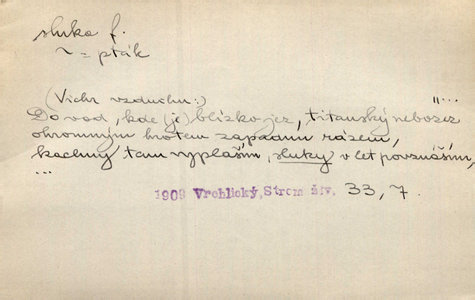 sluka f.
~ = pták
(Vichr vzduchu:) „...
Do vod, kde (je) blízko jez, titanský nebozez
ohromným hrotem zapadnu rázem,
kachny tam vyplaším, sluky v let povznáším,
...
1909 Vrchlický, Strom živ. 33, 7.